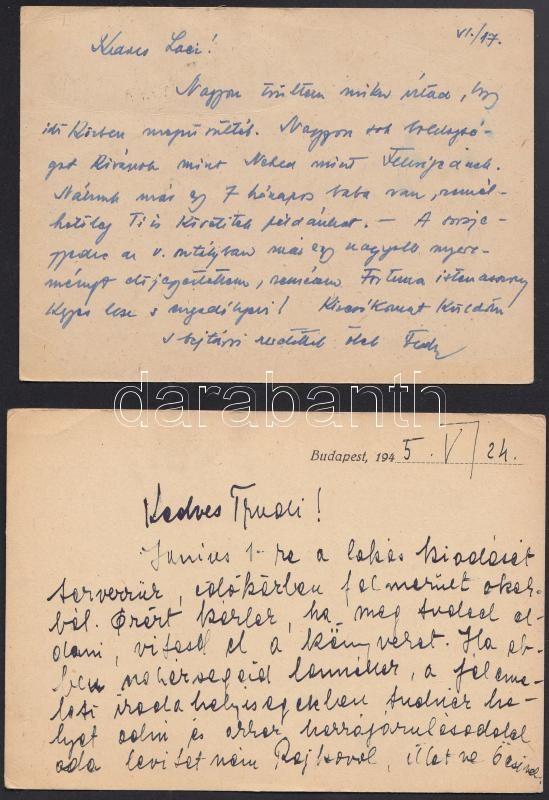 VI./17.
Kedves Laci!
Nagyon örültem mikor írtad, hogy
időközben megnősültél. Nagyon sok boldogsá-
got kívánok mint Neked mint Feleségednek.
Nálunk már egy 7 hónapos baba van, remél-
hetőleg Ti is követitek példánkat. — A
az V. osztályban már egy nagyobb nyere-
ményt remélem Fortuna istenasszony
lesz s Kicsikémet küldöm
s üdvözlettel ölel
darabanth
Budapest, 1945. V/24.
Kedves Trudi!
Június 1-re a lakás kiadását
tervezzük, időközben felmerült okok-
ból. Ezért kérlek, ha meg tudod ol-
dani, vitesd el a könyveket. Ha eb-
ben nehézségeid lennének, a földszin-
irodahelyiségekben tudnék he-
lyet adni és ehhez hozzájárulásoddal
oda levitetném Rajkóval, illetve